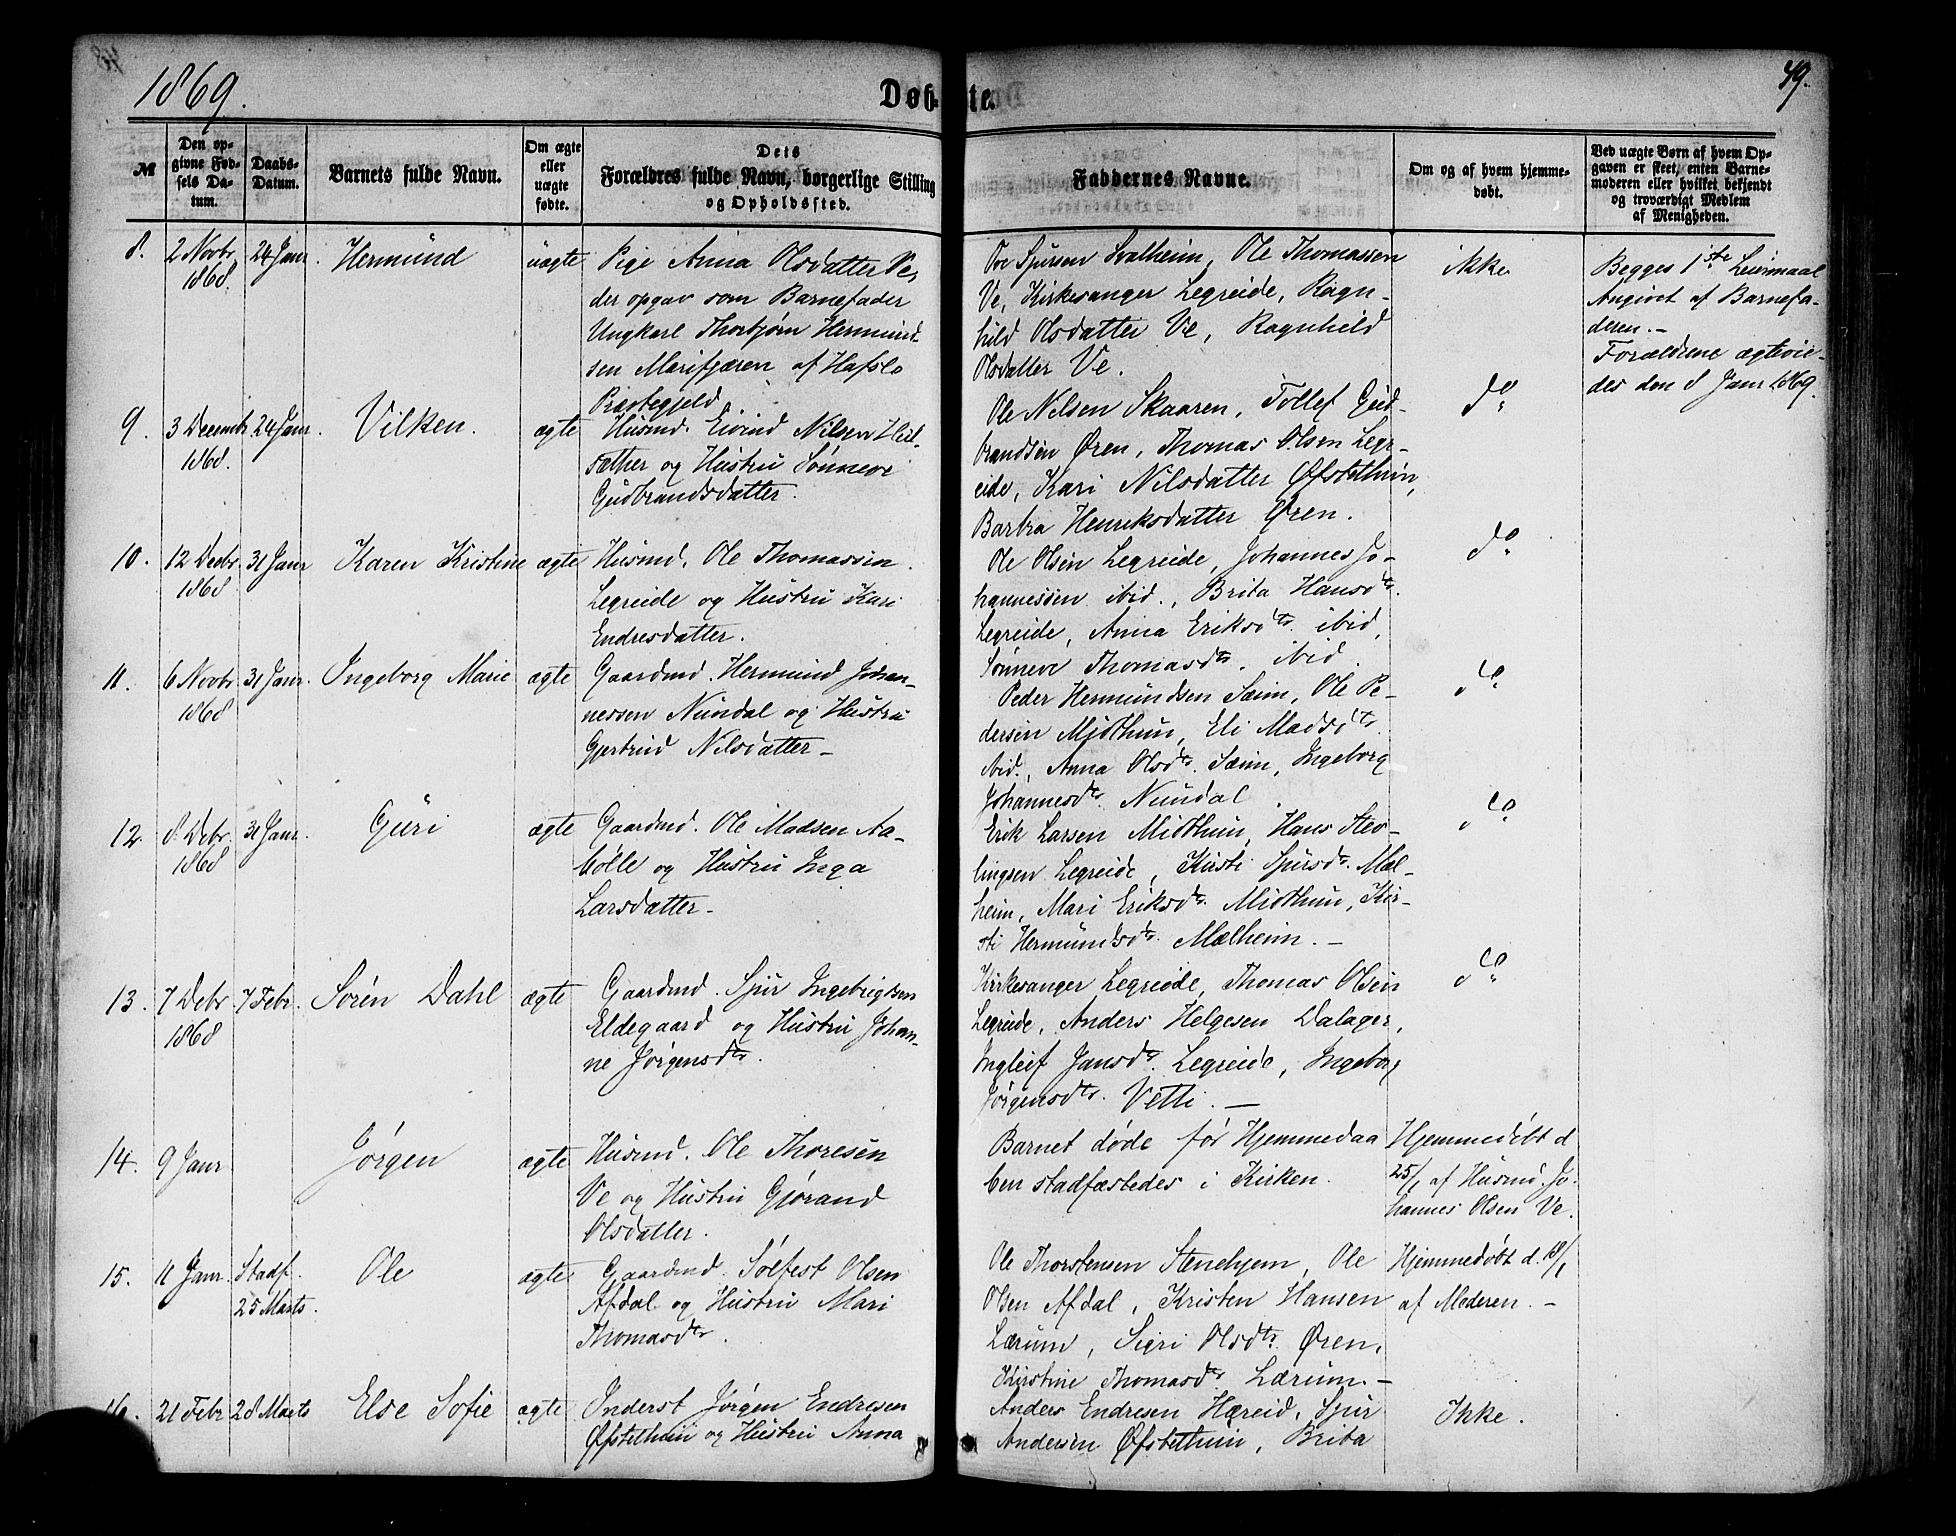 1869.
Døb-
te.
49.
№
Den op-
givne Fød-
sels Da-
tum.
Daabs-
Datum.
Barnets fulde Navn.
Om ægte
eller
uægte
fødte.
Dets
Forældres fulde Navn, borgerlige Stilling
og Opholdssted.
Faddernes Navne.
Om og af hvem hjemme-
døbt.
Ved uægte Børn af hvem Op-
gaven er skeet, enten Barne-
moderen eller hvilket bekjendt
og troværdigt Medlem
af Menigheden.
8. 2 Novbr 1868. 24 Janr. Hermund uægte
Pige Anna Olsdatter Ve,
der opgav som Barnefader
Ungkarl Thorbjørn Hermund-
sen Marifjæren af Hafslo
Præstegjeld.
Ove Sjursen Svalheim, Ole Thomassen
Ve, Kirkesanger Legreide, Ragn-
hild Olsdatter Ve, Ragnhild
Olsdatter Ve.
ikke
Begges 1ste Leiermaal
Angivet af Barnefa-
deren.-
Forældrene ægtevie-
des den 8 Janr 1869.
9. 3 Decembr 1868. 24 Janr. Vilken. ægte
Husmd. Eivind Nilsen
sæther og Hustru Sønneve
Gudbrandsdatter.
Ole Nelsen Skaaren, Tollef Gud-
brandsen Øren, Thomas Olsen Legr-
eide, Kari Nilsdatter Øfstethun,
Barbra Henriksdatter Øren.
do
10. 12 Decbr 1868 31 Janr Karen Kristine ægte
Husmd. Ole Thomassen
Legreide og Hustru Kari
Endresdatter.
Ole Olsen Legreide, Johannes Jo-
hannessen ibid., Brita Hansdtr.
Legreide, Anna Eriksdtr. ibid,
Sønneve Thomasdtr. ibid.
do
11. 6 Novbr 1868 31 Janr. Ingeborg Marie ægte
Gaardmd. Hermund Johan-
nessen Nundal og Hustru
Gjertrud Nilsdatter -
Peder Hermundsen Sæim, Ole Pe-
dersen Midthun, Eli Madsdtr
ibid., Anna Olsdtr. Sæim, Ingeborg
Johannesdtr. Nundal.
do
12. 8 Debr. 1868 31 Janr. Guri ægte
Gaardmd. Ole Madsen Aa-
bølle og Hustru Inga
Larsdatter -
Erik Larsen Midthun, Hans Stev-
lingsen Legreide, Kirsti Sjursdtr. Mæl-
heim, Mari Eriksdtr. Midthun, Kir-
sti Hermundsdtr. Mælheim. -
do
13. 7 Debr 1868 7 Febr. Søren Dahl ægte
Gaardmd. Sjur Ingebrigtsen
Eldegaard og Hustru Johan-
ne Jørgensdtr.
Kirkesanger Legreide, Thomas Olsen
Legreide, Anders Helgesen Dalager,
Ingleif Jansdtr. Legreide, Ingeborg
Jørgensdtr. Vetti. -
do
14. 9 Janr Jørgen ægte
Husmd. Ole Thoresen
Ve og Hustru Gjørand
Olsdatter.
Barnet døde før Hjemmedaa
ben stadfæstedes i Kirken.
Hjemmedøbt d
25/1 af Husmd. Jo-
hannes Olsen Ve.
15. 11 Janr. Stadf. 25 Marts. Ole ægte
Gaardmd. Sølfest Olsen
Afdal og Hustru Mari
Thomasdtr.
Ole Thorstensen Stenehjem, Ole
Olsen Afdal, Kristen Hansen
Lærum, Sigri Olsdtr. Øren,
Kirstine Thomasdtr. Lærum. -
Hjemmedøbt d. 18/1
af Moderen. -
16. 21 Febr 28 Marts Else Sofie ægte
Inderst Jørgen Endresen
Øfstethun og Hustru Anna
Anders Endresen Hæreid, Sjur
Andersen Øfstethun, Brita
Ikke.